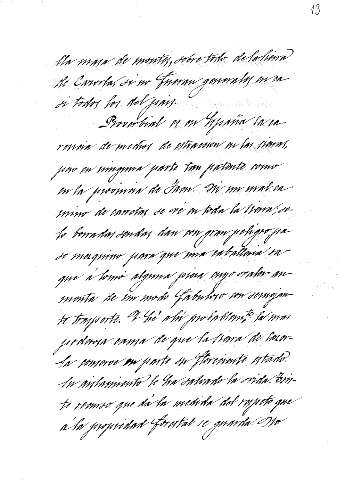 13
lla masa de montes, sobre todo de la Sierra
de Cazorla, si no fueran generales en ca
si todos los del pais.
Proverbial es en España la ca
rencia de medios de estraccion en las sierras,
pero en ninguna parte tan patente como
en la provincia de Jaen. Ni un mal ca
mino de carretas se vé en toda la Sierra, so
lo borradas sendas dan con gran peligro pa
so mezquino para que una caballeria sa
que á lomo alguna pieza cuyo valor au-
menta de un modo fabuloso con semejan
te trasporte. Y hé ahí probablemte la mas
poderosa causa de que la Sierra de Cazor-
la conserve en parte su floreciente estado.
Su aislamiento le ha salvado la vida tris-
te recurso que dá la medida del respeto que
á la propiedad forestal se guarda. No